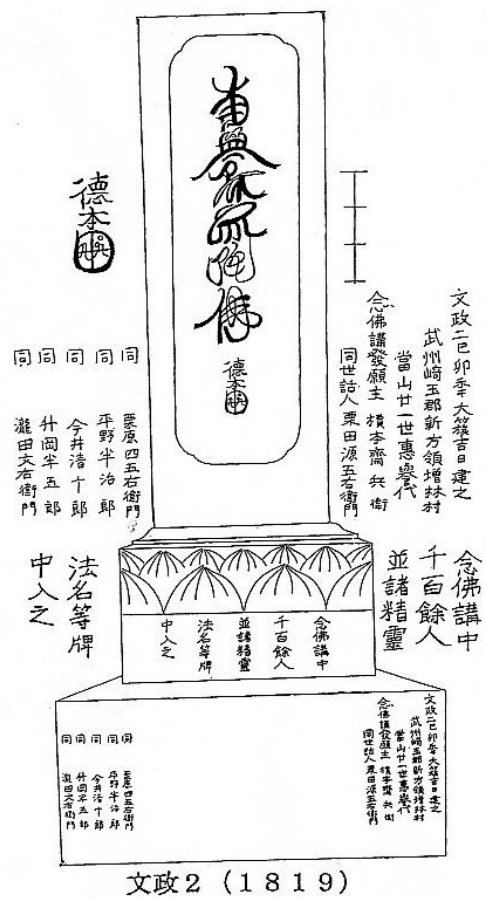 南無阿弥陀佛
德本
德本
文政二巳卯季大簇吉日建之
武州﨑玉郡新方領増林村
當山廿一世惠譽代
念佛講發願主 榎本齋兵衛
同世話人 栗田源五右衛門
同 栗原四五右衛門
同 平野半治郎
同 今井清十郎
同 升岡半五郎
同 瀧田文右衛門
念佛講中
千百餘人
並諸精靈
法名等牌
中入之
念佛講中
千百餘人
並諸精靈
法名等牌
中入之
文政二巳卯季大簇吉日建之
武州﨑玉郡新方領増林村
當山廿一世惠譽代
念佛講發願主 榎本齋兵衛
同世話人 栗田源五右衛門
同 栗原四五右衛門
同 平野半治郎
同 今井清十郎
同 升岡半五郎
同 瀧田文右衛門
文政2（1819）